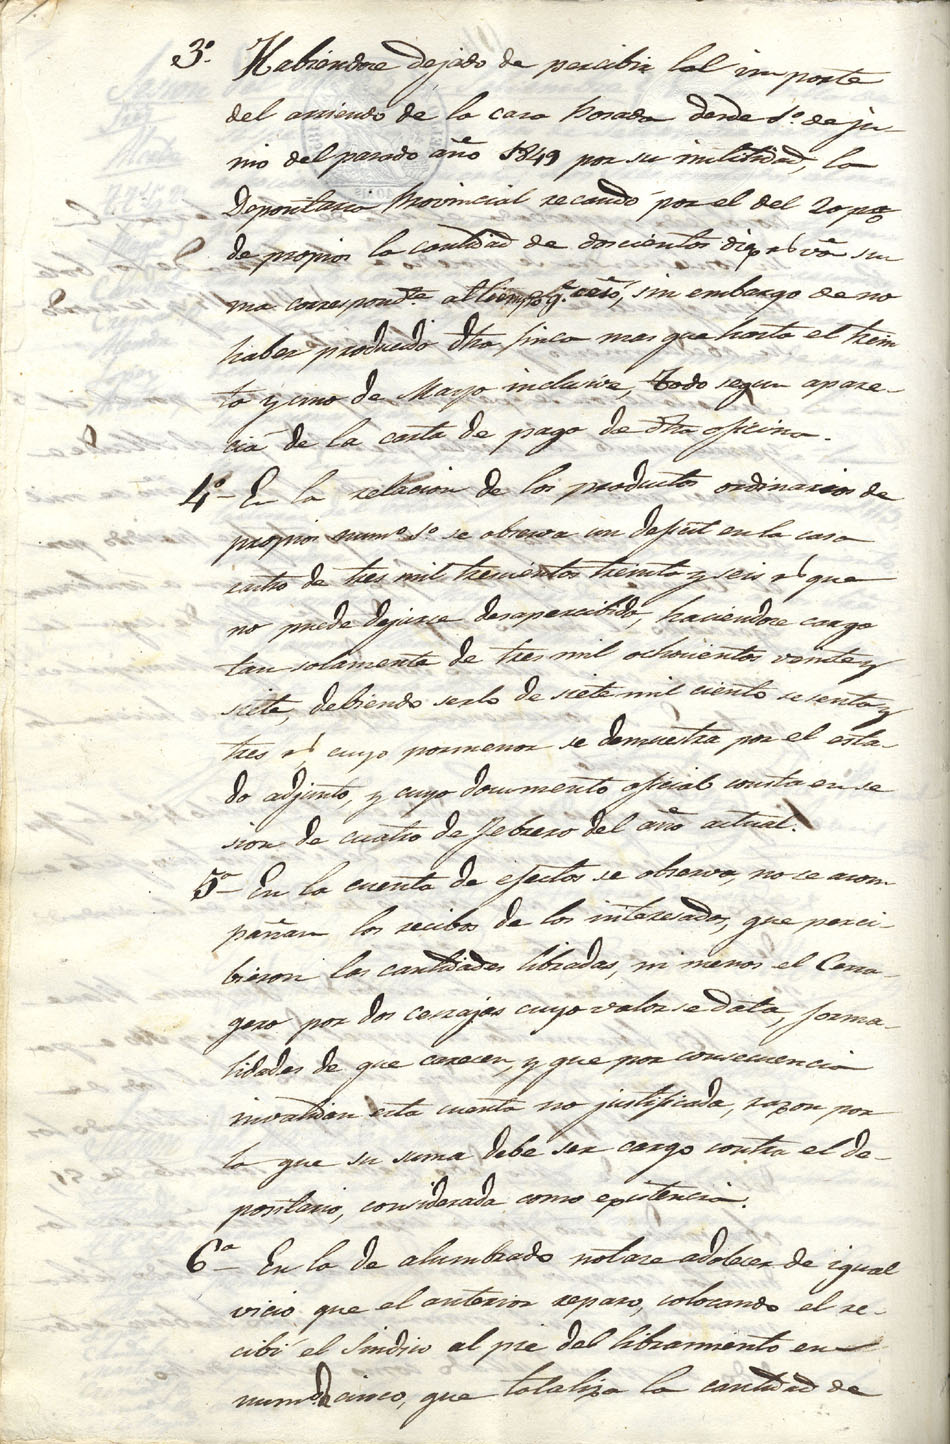 3º. Habiendose dejado de percibir lel importe
del arriendo de la casa Posada desde 1º. de ju-
nio del pasado año 1849 por su inutilidad, la
Depositaria Provincial recaudó por el del 20 pº
de propios la cantidad de doscientos diez rˢ vⁿ su
ma correspondᵗᵉ al tiempo q.ᵉ cesó, sin embargo de no
haber producido dha finca mas que hasta el trein
ta y uno de Mayo inclusive, todo segun apare-
cia de la carta de pago de dha oficina.
4º- En la relacion de los productos ordinarios de
propios numº 1º se observa un deficit en la casa
cuatro de tres mil trescientos treinta y seis rˢ que
no puede dejarse desapercibido, haciendose cargo
tan solamente de tres mil ochocientos veinte y
siete, debiendo serlo de siete mil ciento sesenta y
tres rˢ cuyo pormenor se demuestra por el esta-
do adjunto, y cuyo documento oficial consta en se
sion de cuatro de febrero del año actual.
5ª- En la cuenta de efectos se observa, no se acom
pañan los recibos de los interesados, que perci-
bieron las cantidades libradas, ni menos el Cerra-
gero por dos cerrajas cuyo valor se data, forma-
lidades de que carecen, y que por consecuencia
invalidan esta cuenta no justificada, razon por
la que su suma debe ser cargo contra el de-
positario, considerada como existencia.
6ª- En la de alumbrado notase adolecer de igual
vicio que el anterior reparo, colocando el re-
cibí el Sindico al pie del libramiento en
numº cinco, que totaliza la cantidad de